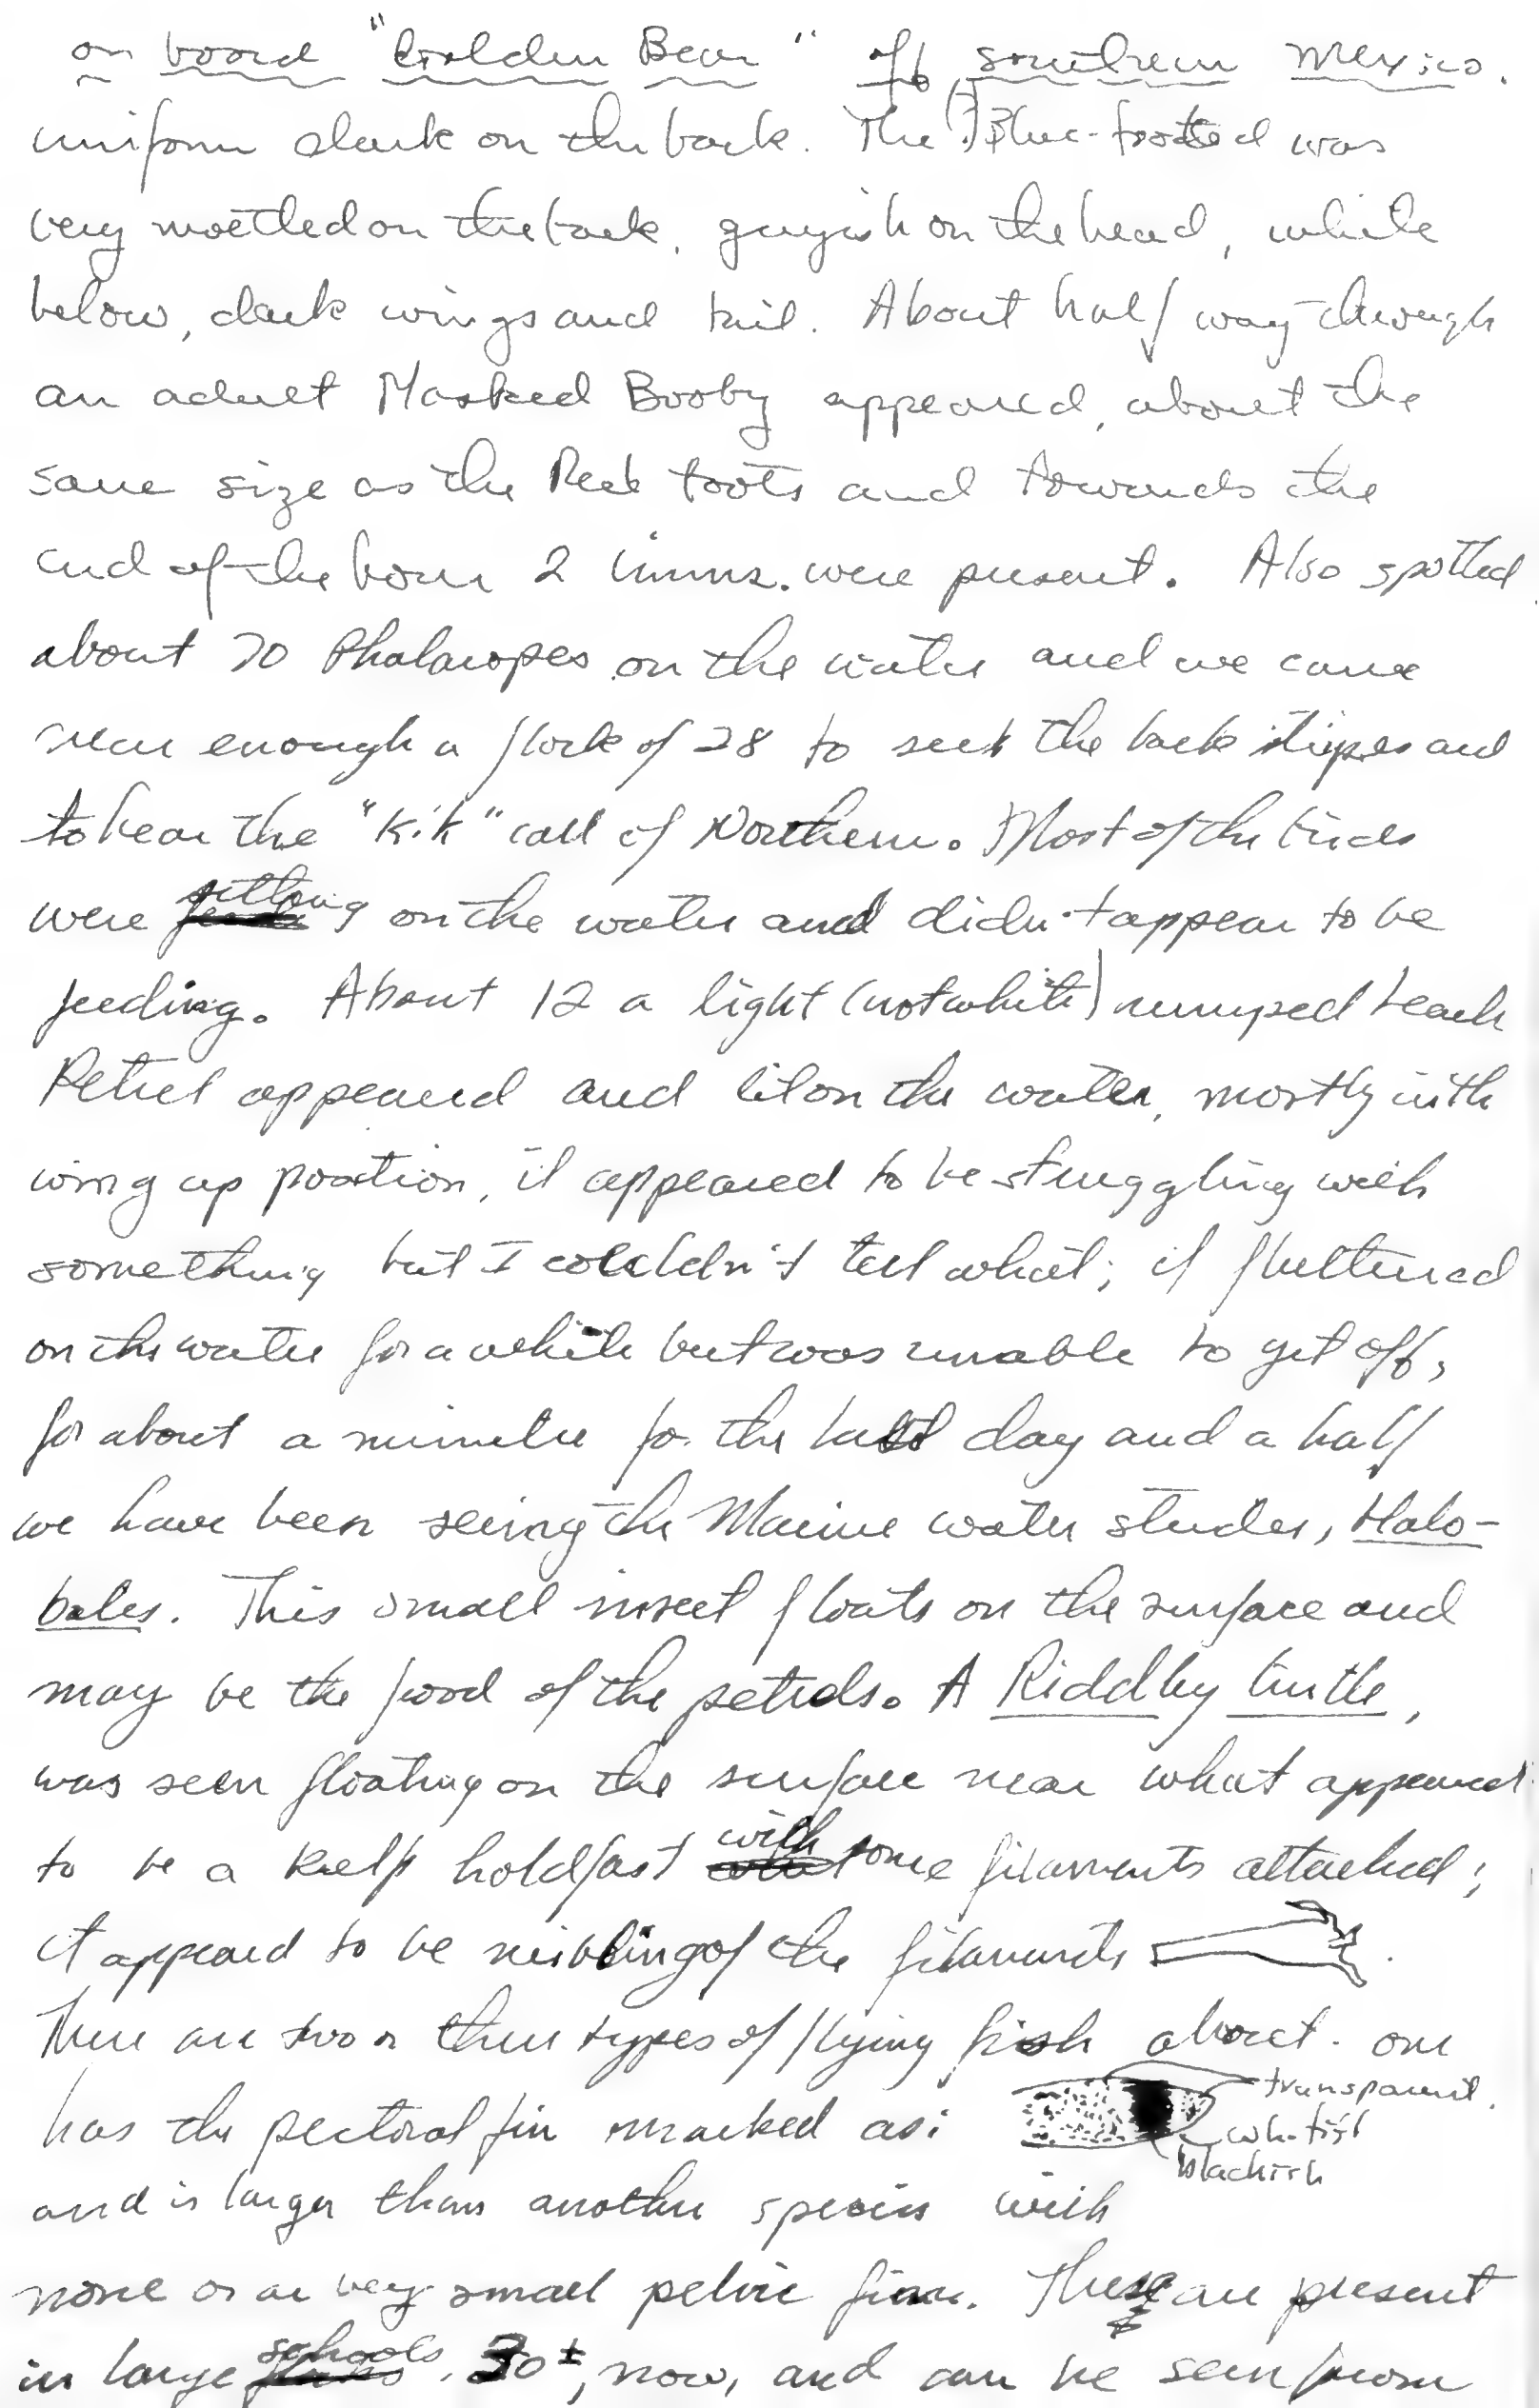 on board "Golden Bear" off southern Mexico.
uniform dark on the back. The (?) Blue-footed was
very mottled on the back, greyish on the head, white
below, dark wings and tail. About half way through
an adult Masked Booby appeared, about the
same size as the Red foots and towards the
end of the hour 2 imms. were present. Also spotted
about 70 Phalaropes on the water and we came
near enough a flock of 28 to see the back stripes and
to hear the "Kik" call of Northern. Most of the birds
were sitting on the water and didn't appear to be
feeding. About 12 a light (not white) rumped Leach
Petrel appeared and lit on the water, mostly with
wing up position, it appeared to be struggling with
something but I couldn't tell what; it fluttered
on the water for a while but was unable to get off,
for about a minute for the last day and a half
we have been seeing the Marine water strider, Halo-
bates. This small insect floats on the surface and
may be the food of the petrels. A Riddley turtle,
was seen floating on the surface near what appeared
to be a kelp holdfast with some filaments attached;
it appeared to be nibbling of the filaments
There are two or three types of flying fish about. one
has the pectoral fin marked as:
transparent.
whitish
blackish
and is larger than another species with
none or a very small pelvic fins. These are present
in large schools, 30±, now, and can be seen from